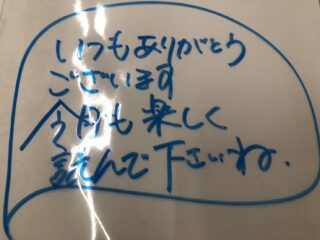 いつもありがとう
ございます
今月も楽しく
読んで下さいね.